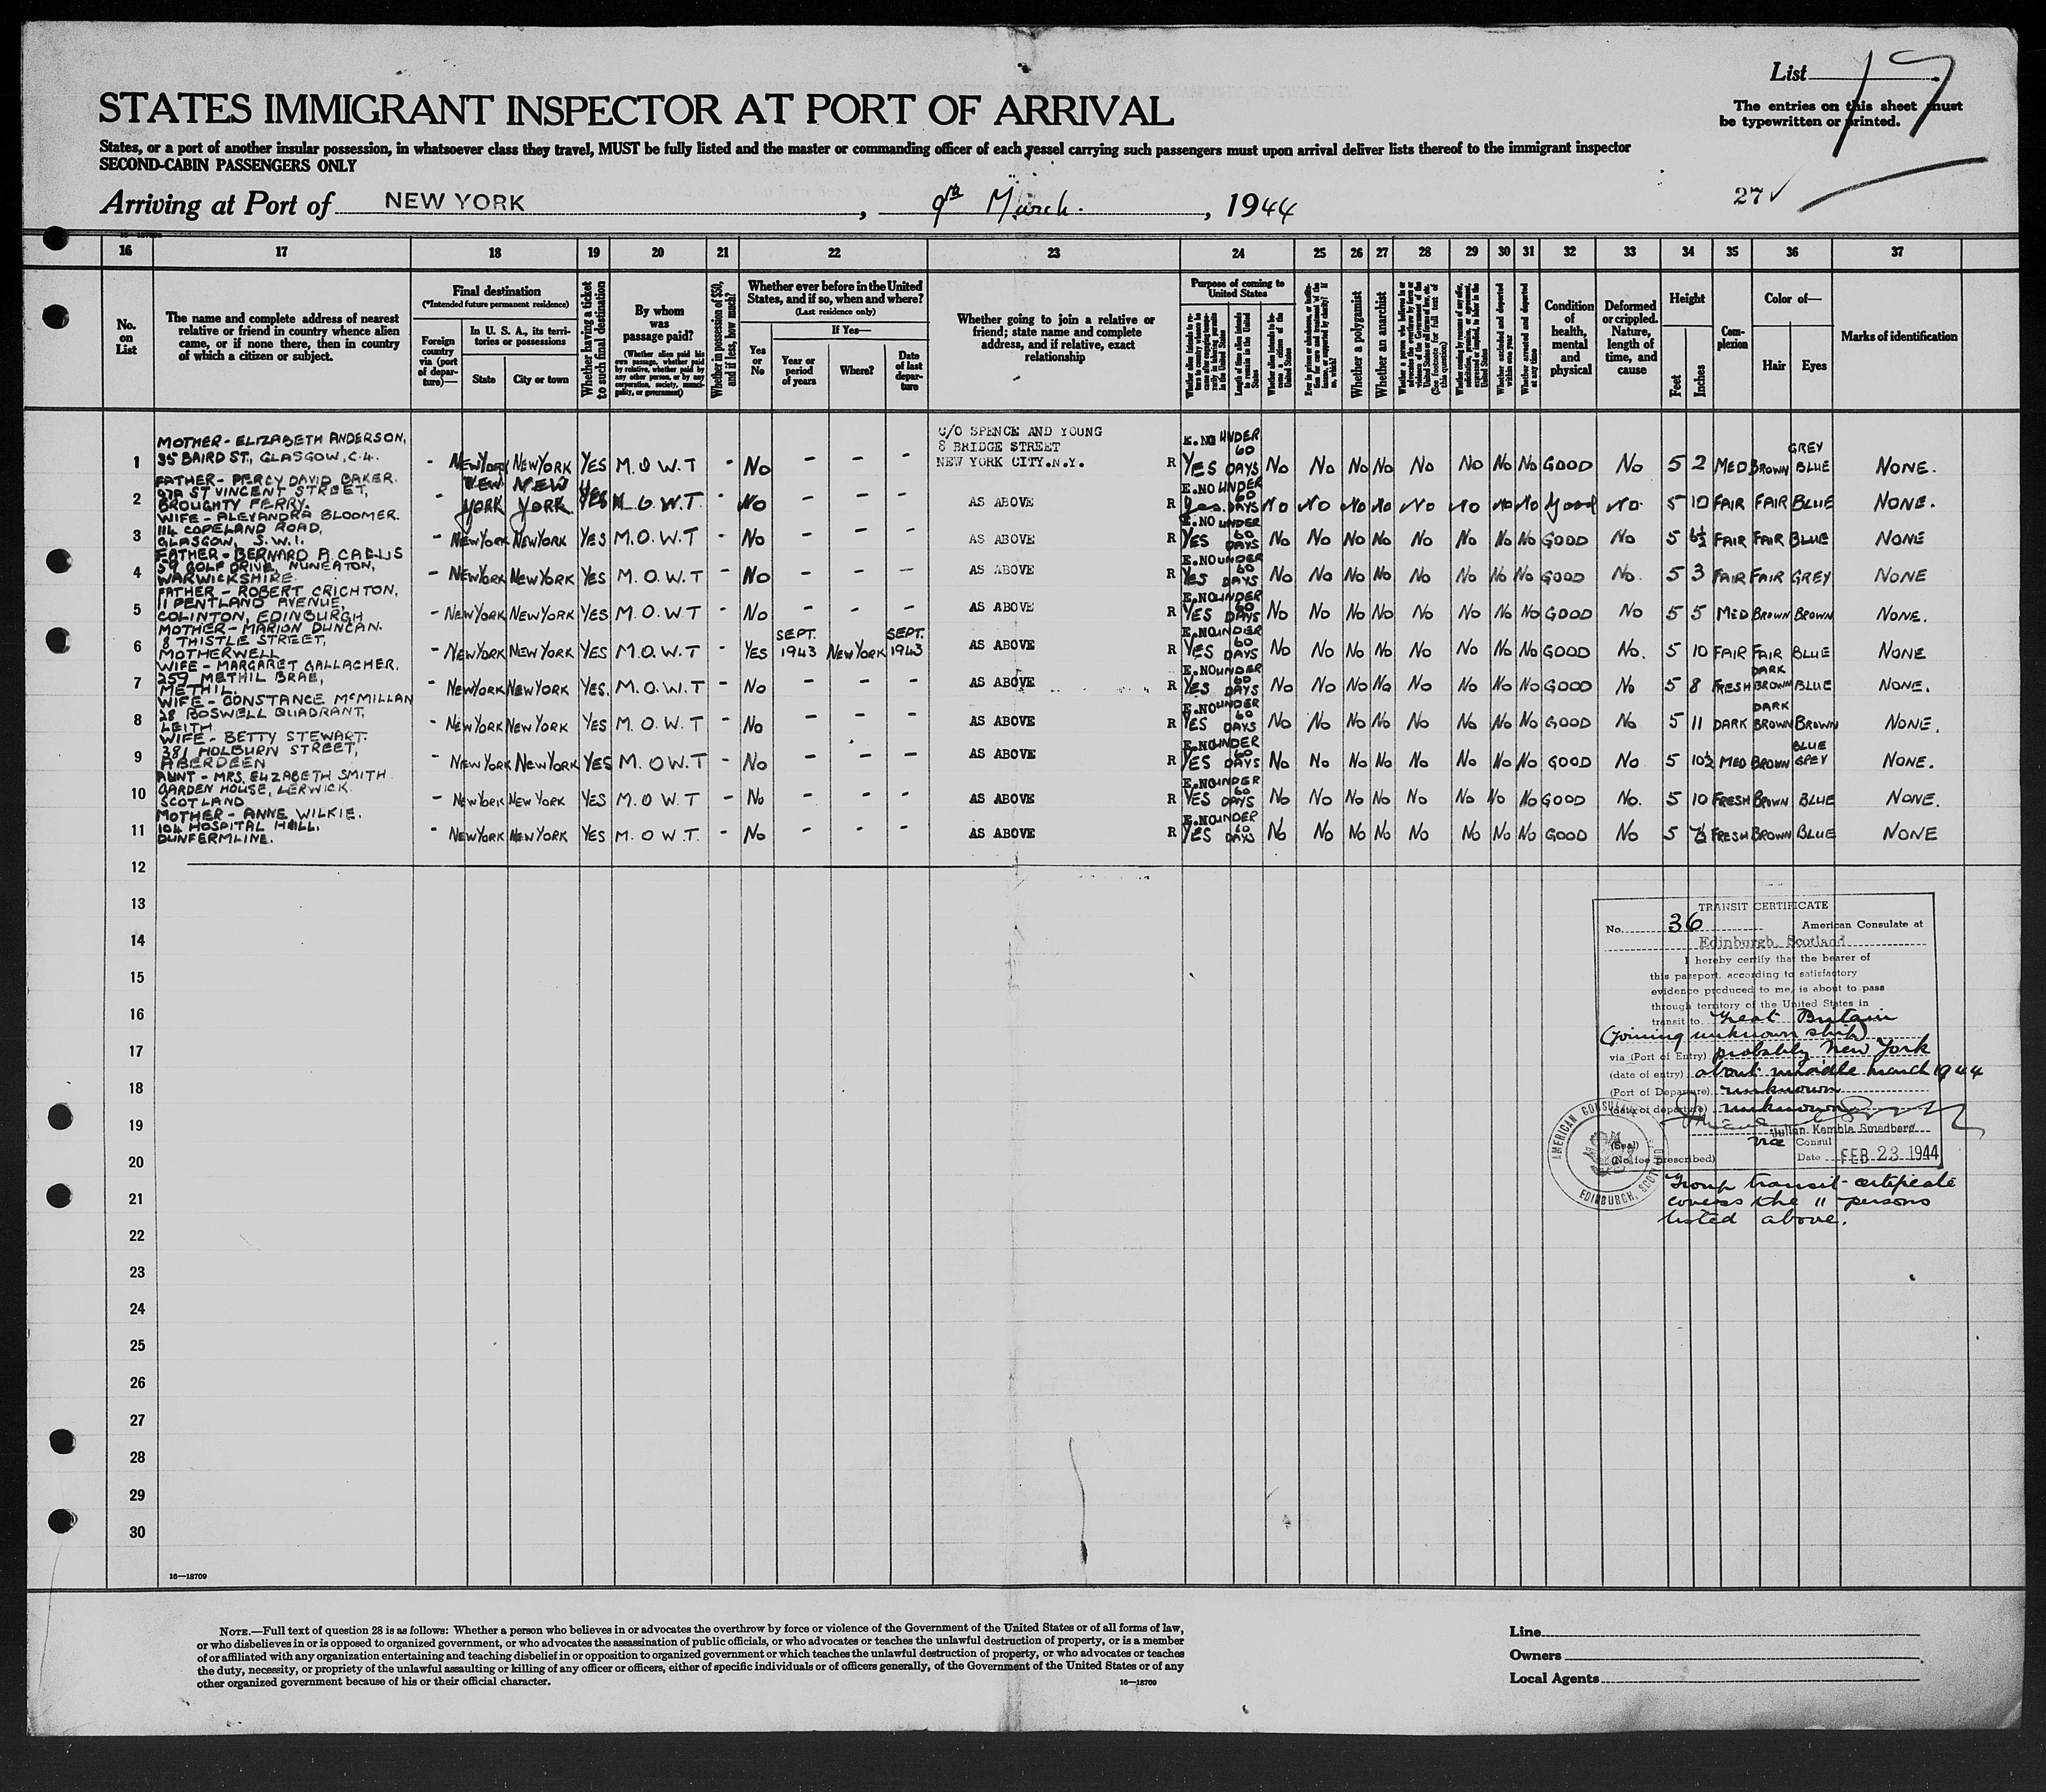 List 17
STATES IMMIGRANT INSPECTOR AT PORT OF ARRIVAL
The entries on this sheet must
be typewritten or printed.
States, or a port of another insular possession, in whatsoever class they travel, MUST be fully listed and the master or commanding officer of each vessel carrying such passengers must upon arrival deliver lists thereof to the immigrant inspector
SECOND-CABIN PASSENGERS ONLY
Arriving at Port of NEW YORK, 9th March. , 1944
27 ✓
16 17 18 19 20 21 22 23 24 25 26 27 28 29 30 31 32 33 34 35 36 37
No. on List
The name and complete address of nearest relative or friend in country whence alien came, or if none there, then in country of which a citizen or subject.
Final destination
(*Intended future permanent residence)
Foreign country via (port of departure)—
In U. S. A., its territories or possessions
State
City or town
Whether having a ticket to such final destination
By whom was passage paid?
(Whether alien paid his own passage, whether paid by relative, whether paid by any other person, or by any corporation, society, municipality, or government)
Whether in possession of $50, and if less, how much?
Whether ever before in the United States, and if so, when and where?
(Last residence only)
Yes or No
If Yes—
Year or period of years
Where?
Date of last departure
Whether going to join a relative or friend; state name and complete address, and if relative, exact relationship
Purpose of coming to United States
Length of time alien intends to remain in the United States
Whether alien intends to become a citizen of the United States
Whether a polygamist
Whether an anarchist
Whether excluded and deported within one year
Whether arrested and deported at any time
Condition of health, mental and physical
Deformed or crippled. Nature, length of time, and cause
Height
Feet
Inches
Complexion
Color of—
Hair
Eyes
Marks of identification
1 MOTHER - ELIZABETH ANDERSON, 35 BAIRD ST., GLASGOW, C.4. - NEW YORK NEW YORK YES M.O.W.T - NO - - - C/O SPENCE AND YOUNG 8 BRIDGE STREET NEW YORK CITY.N.Y. R E.NO YES UNDER 60 DAYS NO NO NO NO NO NO NO NO GOOD NO 5 2 MED BROWN GREY BLUE NONE.
2 FATHER - PERCY DAVID BAKER. ST VINCENT STREET, BROUGHTY FERRY. - NEW YORK NEW YORK YES M.O.W.T. - NO - - - AS ABOVE R E.NO Yes. UNDER 60 DAYS NO NO NO NO NO NO NO NO Good NO. 5 10 FAIR FAIR BLUE NONE.
3 WIFE - ALEXANDRA BLOOMER. 114 COPELAND ROAD, GLASGOW, S.W.1. - NEW YORK NEW YORK YES M.O.W.T - NO - - - AS ABOVE R E.NO YES UNDER 60 DAYS NO NO NO NO NO NO NO NO GOOD NO 5 6½ FAIR FAIR BLUE NONE
4 FATHER - BERNARD A. 59 GOLF DRIVE, NUNEATON, WARWICKSHIRE. - NEW YORK NEW YORK YES M.O.W.T - NO - - - AS ABOVE R E.NO YES UNDER 60 DAYS NO NO NO NO NO NO NO NO GOOD NO. 5 3 FAIR FAIR GREY NONE
5 FATHER - ROBERT CRICHTON, 11 PENTLAND AVENUE, COLINTON, EDINBURGH - NEW YORK NEW YORK YES M.O.W.T - NO - - - AS ABOVE R E.NO YES UNDER 60 DAYS NO NO NO NO NO NO NO NO GOOD NO 5 5 MED BROWN BROWN NONE.
6 MOTHER - MARION DUNCAN. 8 THISTLE STREET, MOTHERWELL - NEW YORK NEW YORK YES M.O.W.T - YES SEPT. 1943 NEW YORK SEPT. 1943 AS ABOVE R E.NO YES UNDER 60 DAYS NO NO NO NO NO NO NO NO GOOD NO. 5 10 FAIR FAIR BLUE NONE
7 WIFE - MARGARET GALLACHER. 259 METHIL BRAE, METHIL. - NEW YORK NEW YORK YES. M.O.W.T - NO - - - AS ABOVE R E.NO YES UNDER 60 DAYS NO NO NO NO NO NO NO NO GOOD NO 5 8 FRESH DARK BROWN BLUE NONE.
8 WIFE - CONSTANCE McMILLAN 28 BOSWELL QUADRANT, LEITH - NEW YORK NEW YORK YES M.O.W.T - NO - - - AS ABOVE R E.NO YES UNDER 60 DAYS NO NO NO NO NO NO NO NO GOOD NO 5 11 DARK DARK BROWN BROWN NONE.
9 WIFE - BETTY STEWART. 381 HOLBURN STREET, ABERDEEN - NEW YORK NEW YORK YES M.O.W.T - NO - - - AS ABOVE R E.NO YES UNDER 60 DAYS NO NO NO NO NO NO NO NO GOOD NO 5 10½ MED BROWN BLUE GREY NONE.
10 AUNT - MRS. ELIZABETH SMITH GARDEN HOUSE, LERWICK. SCOTLAND - NEW YORK NEW YORK YES M.O.W.T - NO - - - AS ABOVE R E.NO YES UNDER 60 DAYS NO NO NO NO NO NO NO NO GOOD NO. 5 10 FRESH BROWN BLUE NONE.
11 MOTHER - ANNE WILKIE. 104 HOSPITAL HILL, DUNFERMLINE. - NEW YORK NEW YORK YES M.O.W.T. - NO - - - AS ABOVE R E.NO YES UNDER 60 DAYS NO NO NO NO NO NO NO NO GOOD NO 5 FRESH BROWN BLUE NONE
12
13
14
15
16
17
18
19
20
21
22
23
24
25
26
27
28
29
30
TRANSIT CERTIFICATE
No. 36 American Consulate at
Edinburgh, Scotland
I hereby certify that the bearer of
this passport, according to satisfactory
evidence produced to me, is about to pass
through territory of the United States in
transit to Great Britain
(joining unknown ship)
via (Port of Entry) probably New York
(date of entry) about middle March 1944
(Port of Departure) unknown
(date of departure) unknown
Julian Kemble Smedberg
vice Consul
(Seal)
(No fee prescribed)
Date FEB 23 1944
AMERICAN CONSULATE
EDINBURGH, SCOTLAND
Group transit certificate
covers the 11 persons
listed above.
16—18709
NOTE.—Full text of question 28 is as follows: Whether a person who believes in or advocates the overthrow by force or violence of the Government of the United States or of all forms of law,
or who disbelieves in or is opposed to organized government, or who advocates the assassination of public officials, or who advocates or teaches the unlawful destruction of property, or is a member
of or affiliated with any organization entertaining and teaching disbelief in or opposition to organized government or which teaches the unlawful destruction of property, or who advocates or teaches
the duty, necessity, or propriety of the unlawful assaulting or killing of any officer or officers, either of specific individuals or of officers generally, of the Government of the United States or of any
other organized government because of his or their official character.
16—18709
Line
Owners
Local Agents